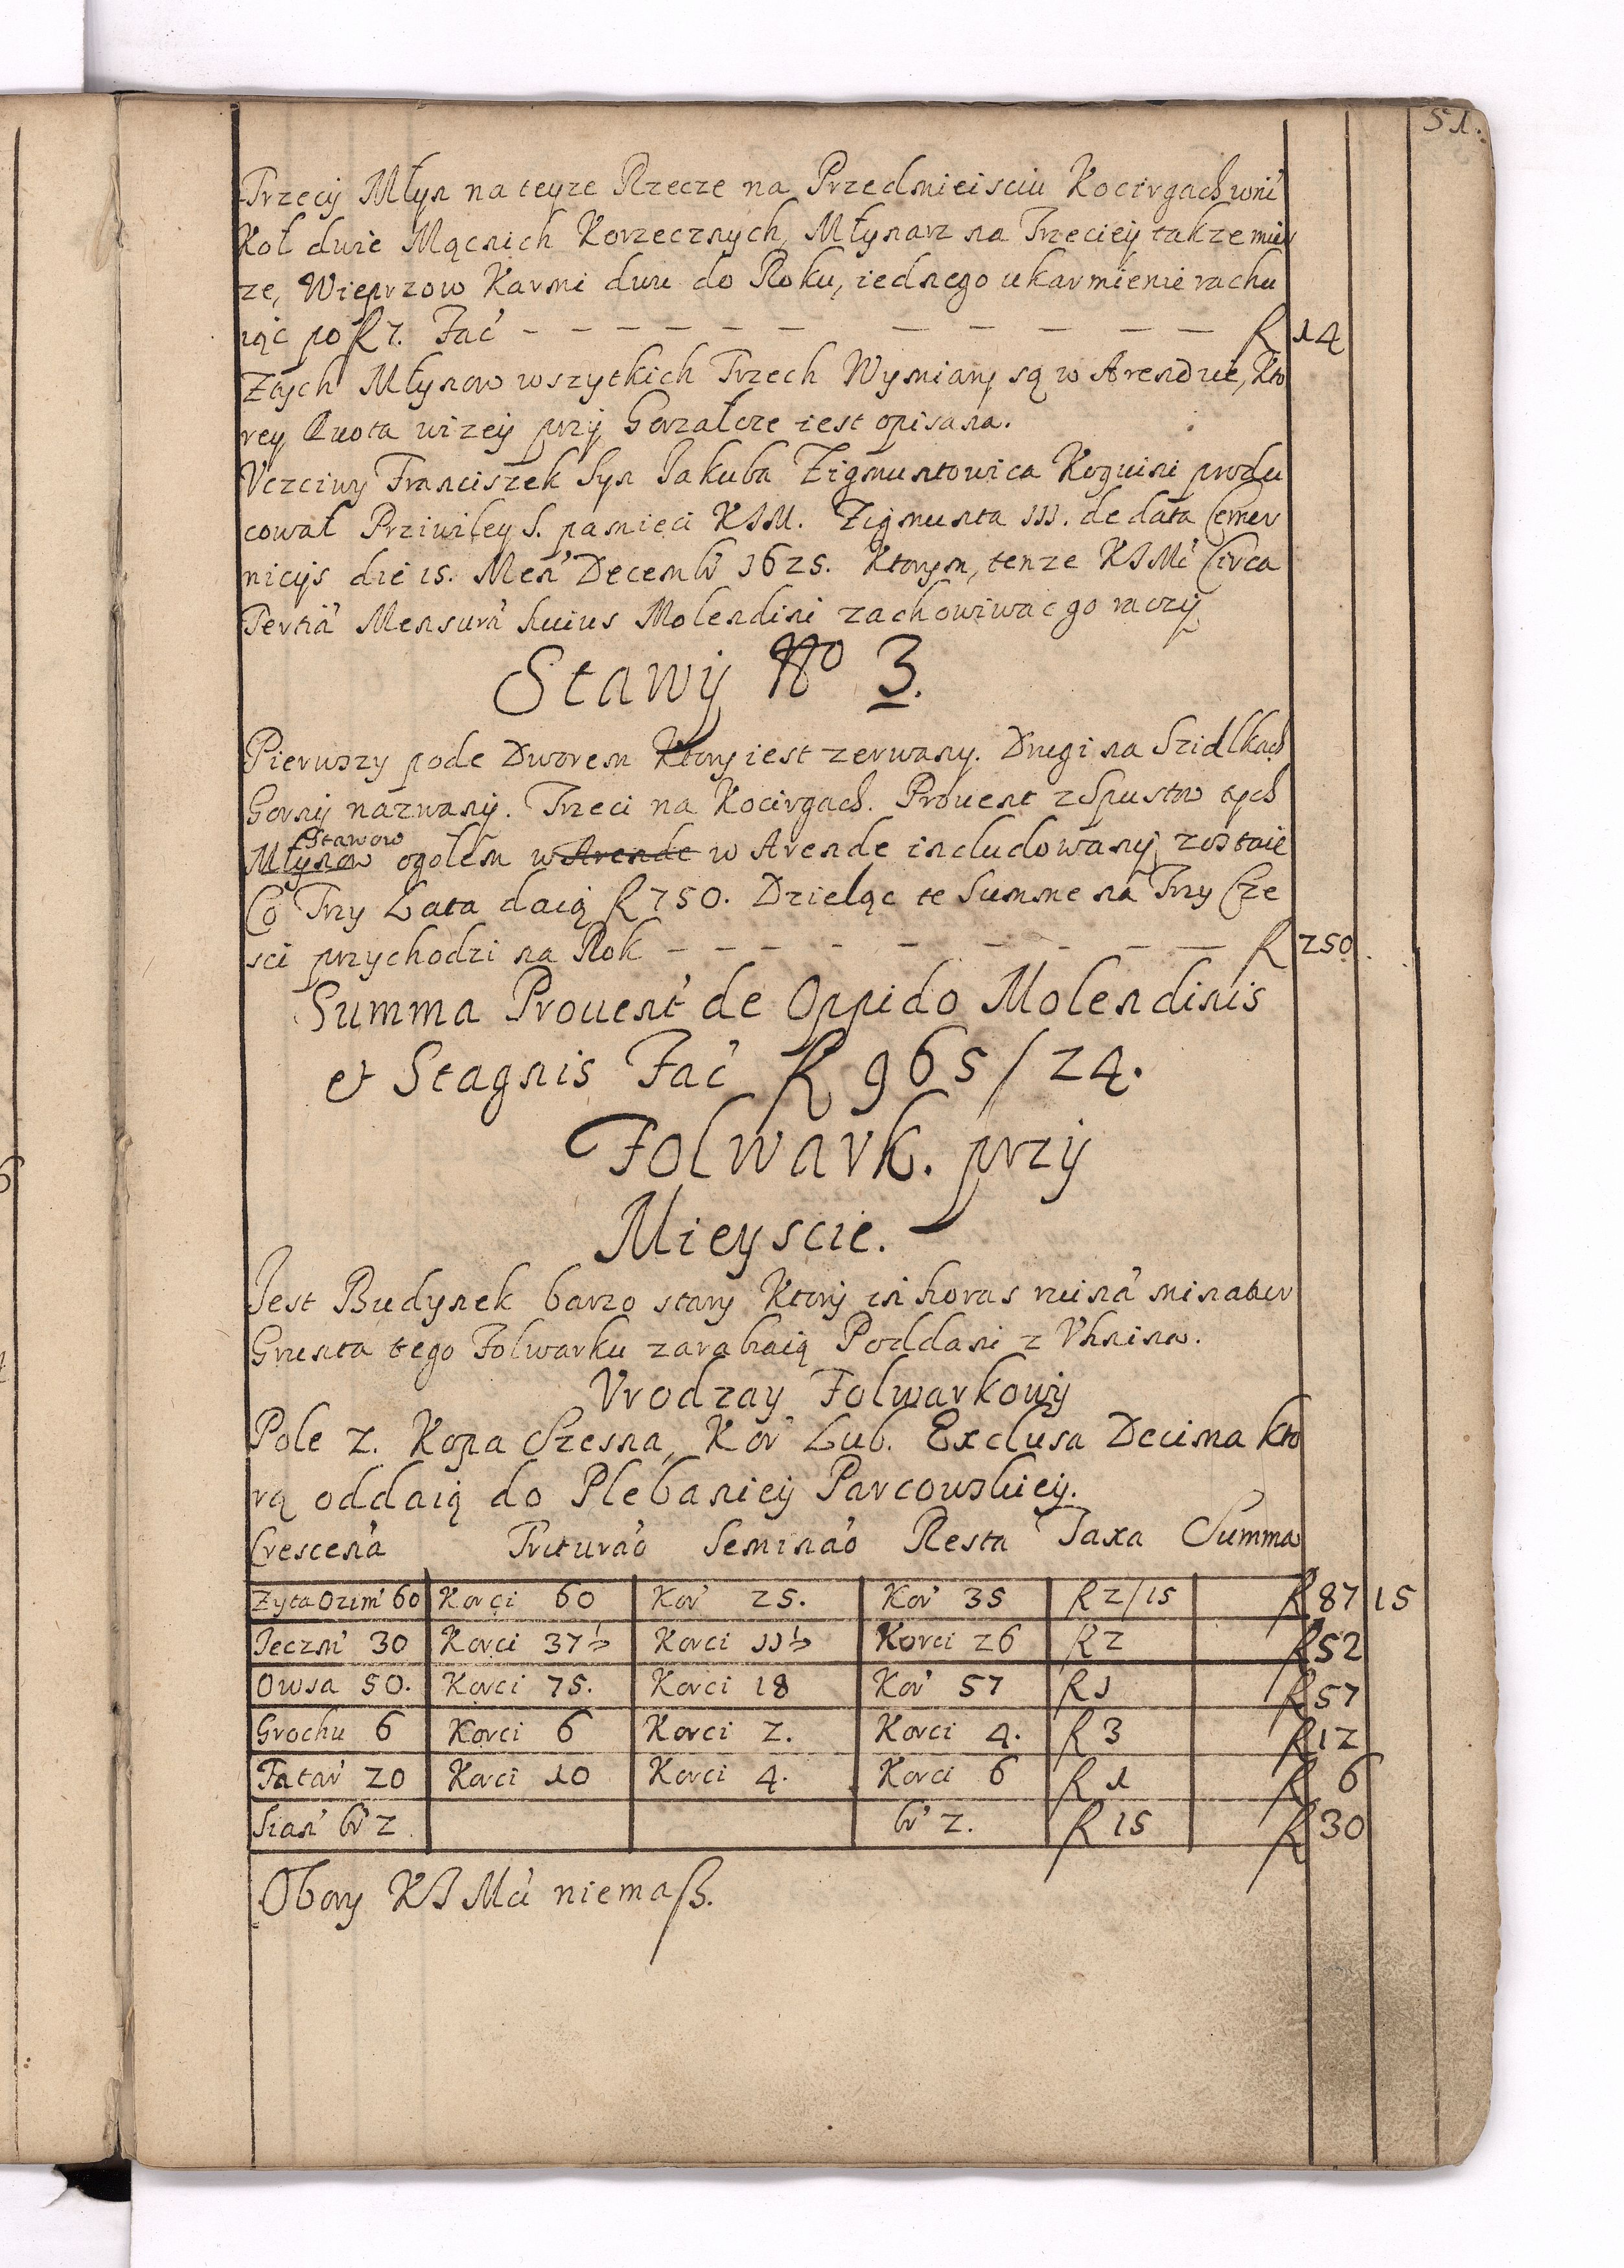 51.
Trzecÿ Młyn na teyze Rzecze na Przedmieisciu Kocirgach wni
Koł dwie Mącnich Korzecznych, Młynarz na Trzecieÿ takze mie
ze, Wieprzow Karmi dwu do Roku, iednego ukarmienie rachu
iąc po f 7. Fać — — — — — — — — — — — — — f 14
Ztÿch Młynow wszytkich Trzech Wymiary są w Arendzie, Kto
reÿ Quota wizeÿ przÿ Gorzałcze iest opisana.
Vczciwy Franciszek Syn Jakuba Zigmuntowica Koguini produ
cował Przivileÿ S. pamieci KJM. Zigmunta III. de data Cemer
nicÿs die 15. Men̄ Decemb̄ 1625. Ktorÿm, tenze KJMć Circa
Tertiā Mensurā huius Molendini zachowiwac go raczÿ
Stawÿ No 3.
Pierwszy pode Dworem Ktorÿ iest zerwany. Drugi na Szidlkach
Gornÿ nazwanÿ. Trzeci na Kocirgach. Provent z Spustow tych
Stawow
Młynow ogołem w Arende w Arende includowanÿ zostaie
Co Trzy Lata daią f 750. Dzieląc te Summe na Trzy Cze
sci przychodzi na Rok — — — — — — — — — f 250
Summa Provent́ de Oppido Molendinis
et Stagnis Fać f 965/24.
Folwark. przÿ
Mieyscie.
Jest Budynek barzo stary Ktorÿ in horas ruinā minatur
Grunta tego Folwarku zarabiaią Poddani z Vhnina.
Vrodzay Folwarkowÿ
Pole 2. Kopa Czesna, Kor̄ Lub. Exclusa Decima kto
rą oddaią do Plebanieÿ Parcowskieÿ.
Crescen̄a Triturāo Semināo Resta Taxa Summa
Zyta Ozim̄ 60 Korci 60 Kor̄ 25. Kor̄ 35 f 2/15 f 87 15
Jeczm̄ 30 Korci 37½ Korci 11½ Korci 26 f 2 f 52
Owsa 50. Korci 75. Korci 18 Kor̄ 57 f 1 f 57
Grochu 6 Korci 6 Korci 2. Korci 4. f 3 f 12
Tatar̄ 20 Korci 10 Korci 4. Korci 6 f 1 f 6
Sian̄ br̄ 2 br̄ 2. f 15 f 30
Obory KJMći niemaß.